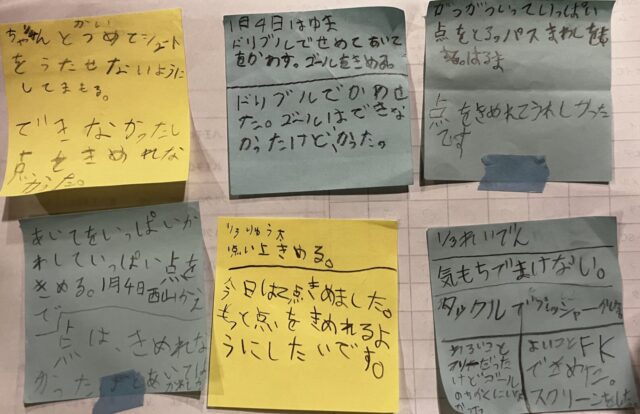 かい
ちゃんとつめてシュート
をうたせないように
してまもる。
できなかったし
点をきめれな
かった。
1月4日はゆま
ドリブルでせめてあいて
をかわす。ゴールをきめる。
ドリブルでかわせ
た。ゴールはできな
かったけど、かった。
がつがついっていっぱい
点をとる
パスまわしを
はるま
点をきめれてうれしかった
です
あいてをいっぱいか
わしていっぱい点を
きめる。1月4日西山
で
点は、きめれな
かった
1/3りゅう太
点いよきめる。
今日は2点きめました。
もっと点をきめれるよ
うにしたいです。
1/3れいでん
気もちでまけない。
タックルでプレッシャー
わるいこと
だった
けどゴール
のちかくに
よいことFK
できめた。
スクリーンをした